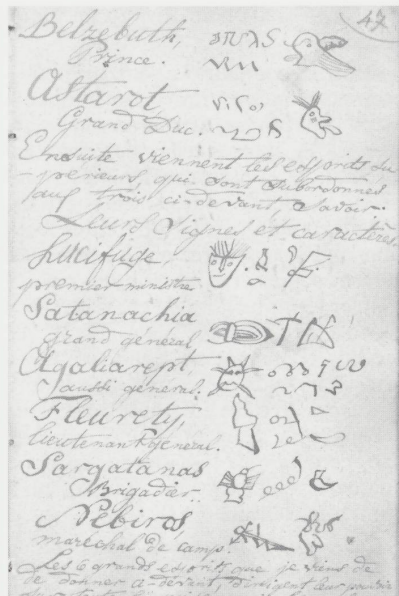 47
Belzebuth,
Prince.
Astarot,
Grand Duc.
Ensuite viennent les esprits su
-perieurs qui sont subordonnés
aux trois ci-devant, Savoir.
Leurs signes et caractères.
Lucifuge,
premier ministre
Satanachia
grand général
Agaliarept,
aussi général.
Fleurety,
lieutenant général.
Sargatanas
Brigadier.
Nebiros,
maréchal de camp.
Les 6 grands esprits que je viens de
de donner ci-devant, dirigent leur